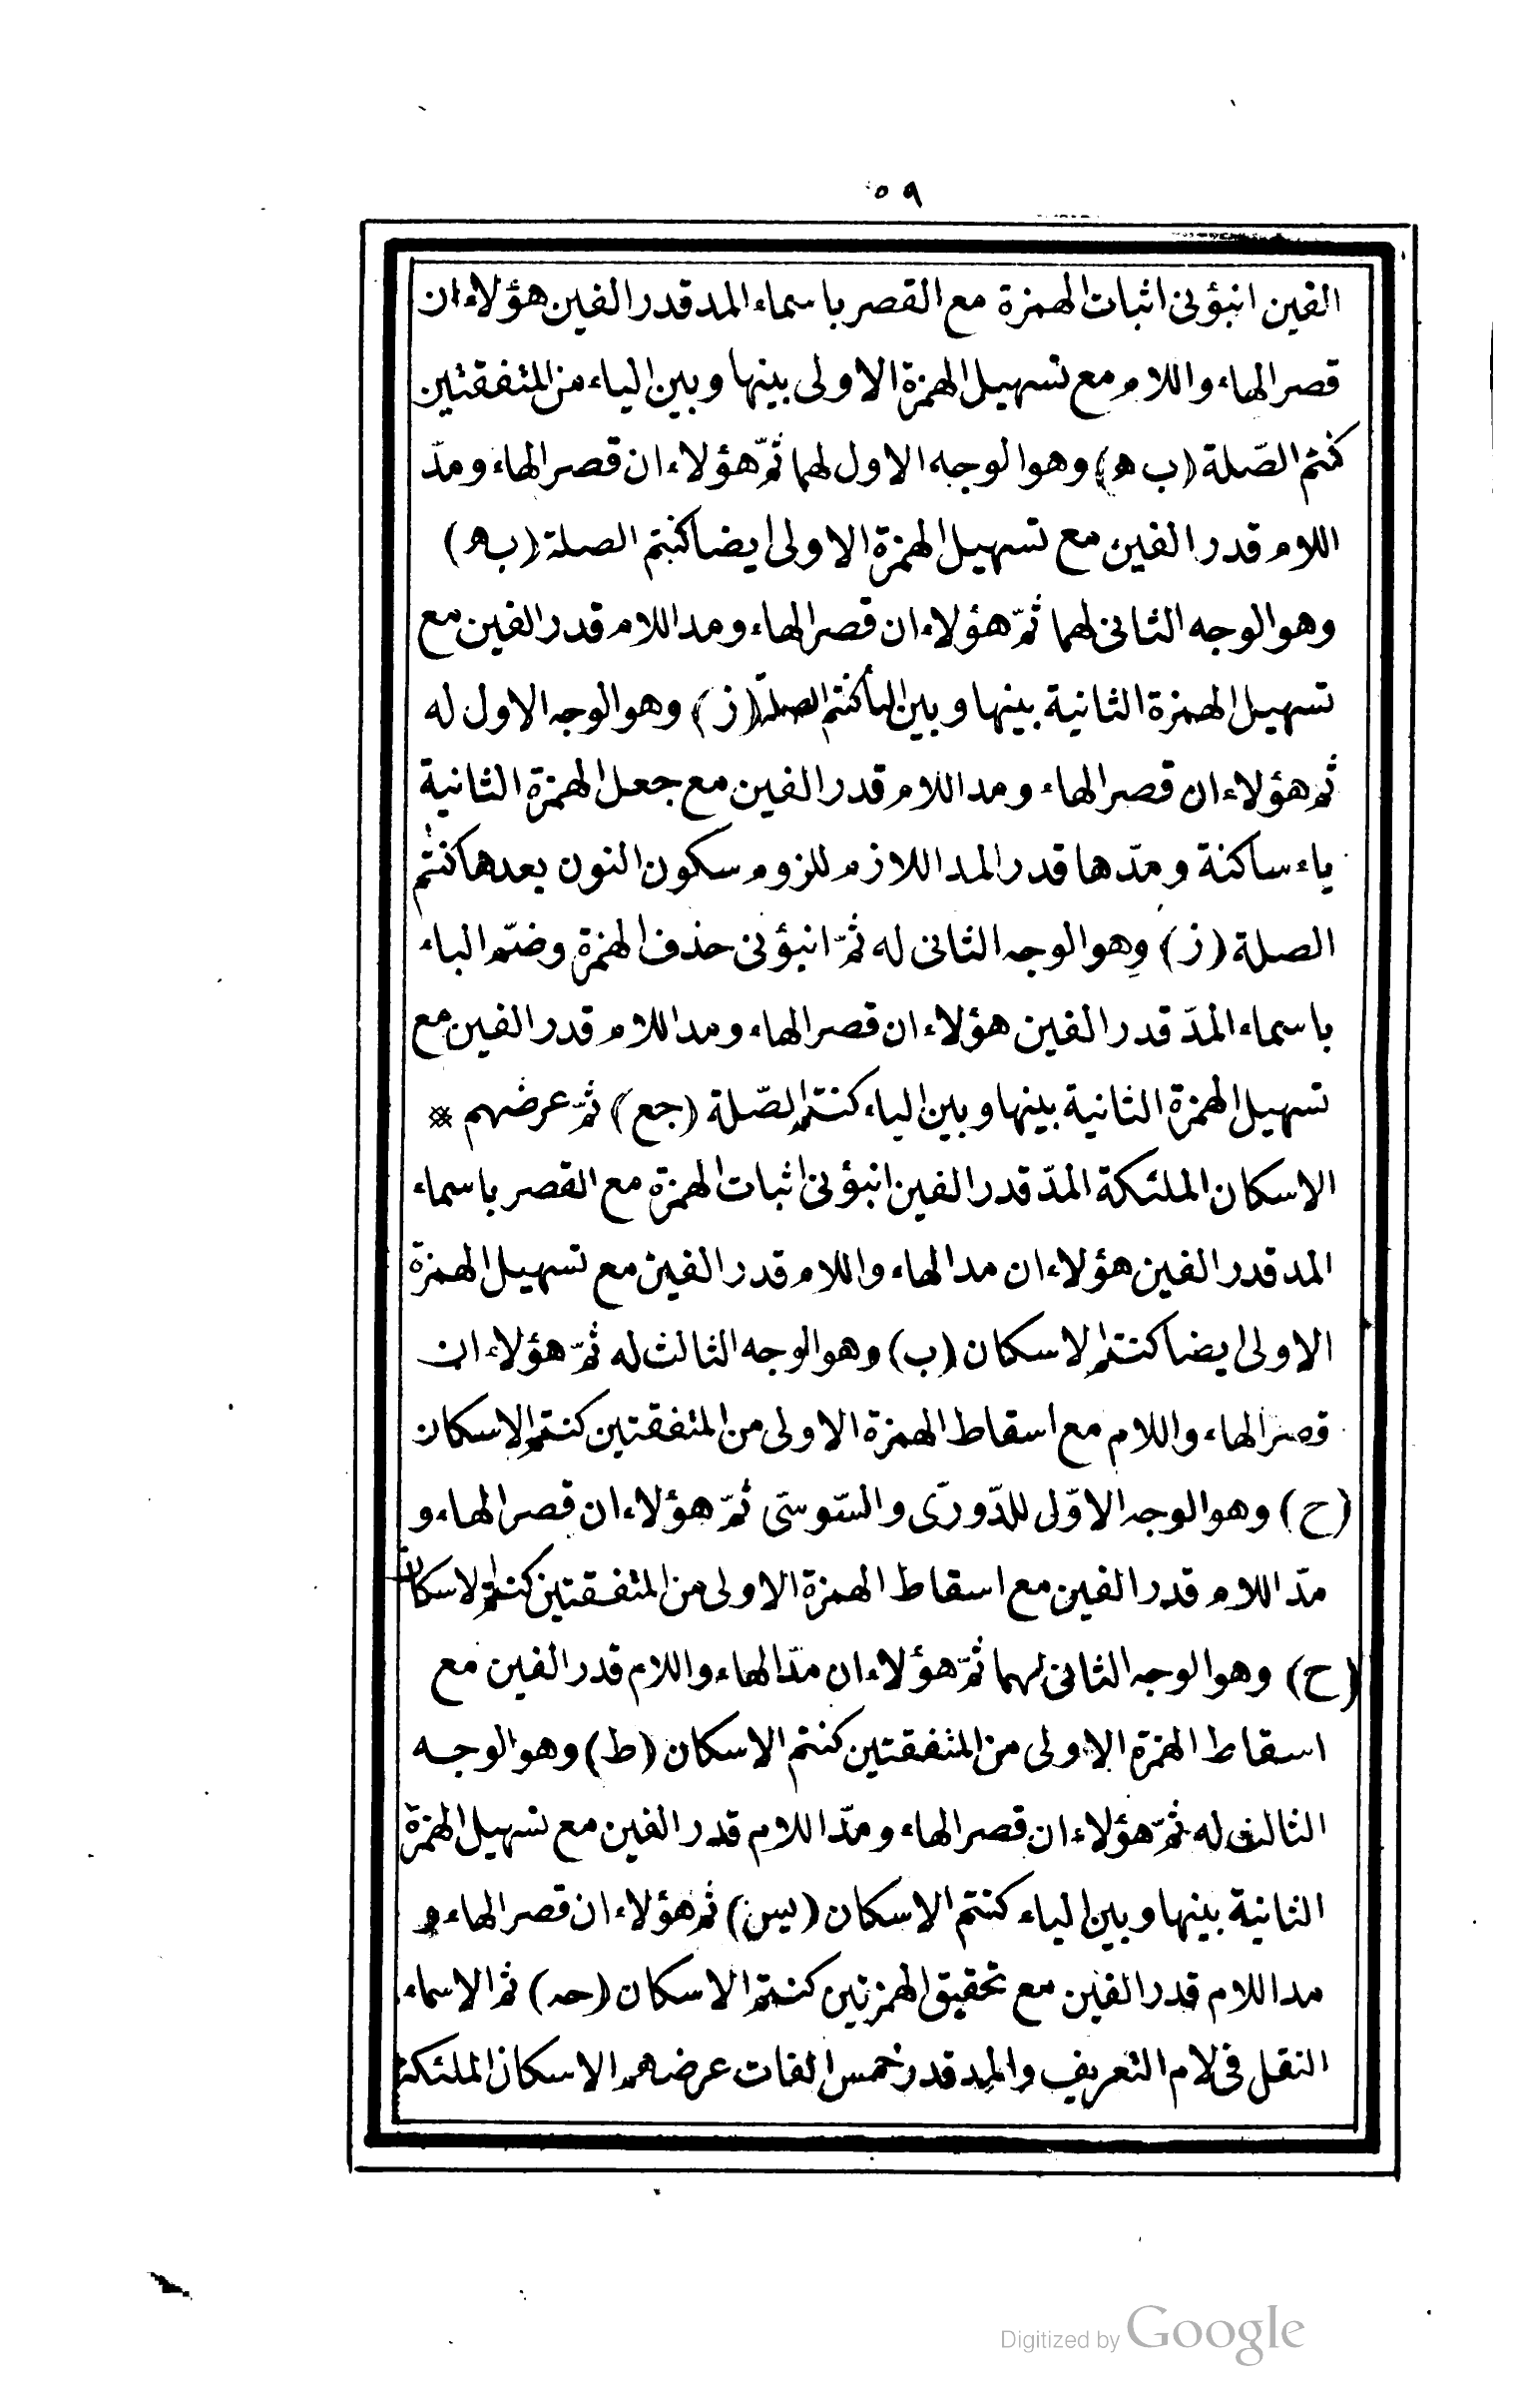 ٥٩
الفين انبؤنى اثبات الهمزة مع القصر باسماء المد قدر الفين هؤلاء ان
قصر الهاء واللام مع تسهيل الهمزة الاولى بينها وبين الياء من المتفقتين
كنتم الصّلة (ب ه) وهو الوجه الاول لهما ثمّ هؤلاء ان قصر الهاء ومدّ
اللام قدر الفين مع تسهيل الهمزة الاولى ايضا كنتم الصلة (ب ه)
وهو الوجه الثانى لهما ثمّ هؤلاء ان قصر الهاء ومد اللام قدر الفين مع
تسهيل الهمزة الثانية بينها وبين اليأ كنتم الصلة (ز) وهو الوجه الاول له
ثم هؤلاء ان قصر الهاء ومد اللام قدر الفين مع جعل الهمزة الثانية
ياء ساكنة ومدّها قدر المد اللازم للزوم سكون النون بعدها كنتم
الصلة (ز) وهو الوجه الثانى له ثمّ انبؤنى حذف الهمزة وضمّ الباء
باسماء المدّ قدر الفين هؤلاء ان قصر الهاء ومد اللام قدر الفين مع
تسهيل الهمزة الثانية بينها وبين الياء كنتم الصّلة (جع) ثمّ عرضهم ※
الاسكان الملئكة المدّ قدر الفين انبؤنى اثبات الهمزة مع القصر باسماء
المد قدر الفين هؤلاء ان مد الهاء واللام قدر الفين مع تسهيل الهمزة
الاولى ايضا كنتم الاسكان (ب) وهو الوجه الثالث له ثمّ هؤلاء ان
قصر الهاء واللام مع اسقاط الهمزة الاولى من المتفقتين كنتم الاسكان
(ح) وهو الوجه الاوّل للدّورىّ والسّوسىّ ثمّ هؤلاء ان قصر الهاء و
مدّ اللام قدر الفين مع اسقاط الهمزة الاولى من المتفقتين كنتم الاسكان
(ح) وهو الوجه الثانى لهما ثمّ هؤلاء ان مدّ الهاء واللام قدر الفين مع
اسقاط الهمزة الاولى من المتفقتين كنتم الاسكان (ط) وهو الوجه
الثالث له ثمّ هؤلاء ان قصر الهاء ومدّ اللام قدر الفين مع تسهيل الهمزة
الثانية بينها وبين الياء كنتم الاسكان (يس) ثم هؤلاء ان قصر الهاء و
مد اللام قدر الفين مع تحقيق الهمزتين كنتم الاسكان (حه) ثم الاسماء
النقل فى لام التعريف والمد قدر خمس الفات عرضهم الاسكان الملئكة
Digitized by Google